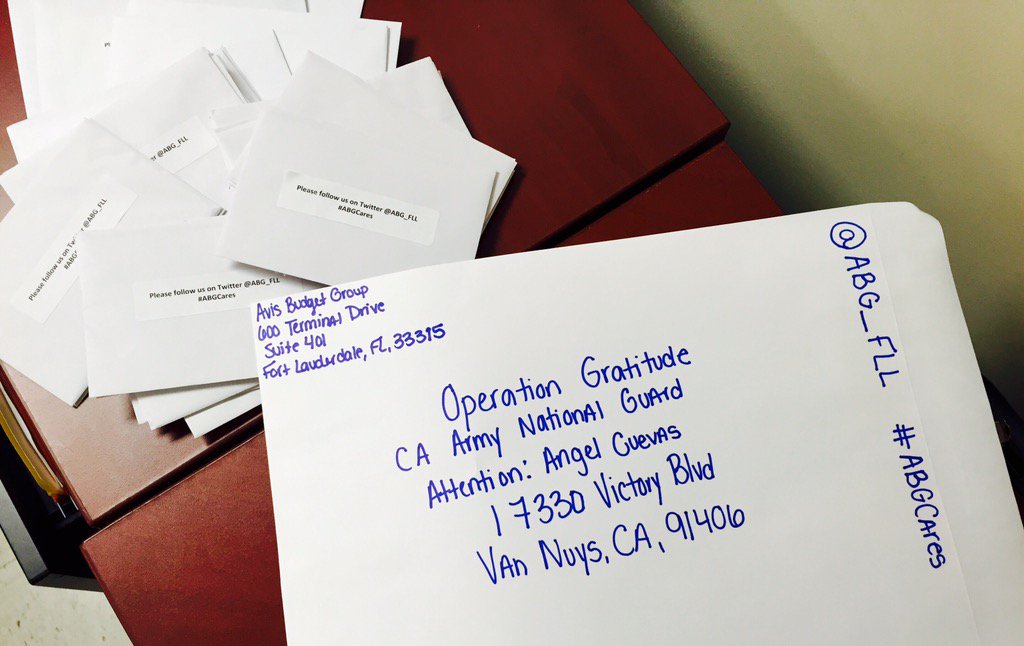 Pl
er @ABG_FLL
Please follow us on Twitter @ABG_FLL
#ABGCares
Please follow us on Tw @ABG_FLL
#ABG
Please follow us on Twitter @ABG_FLL
#ABGCares
Avis Budget Group
600 Terminal Drive
Suite 401
Fort Lauderdale, FL, 33315
Operation Gratitude
CA Army National Guard
Attention: Angel Cuevas
17330 Victory Blvd
Van Nuys, CA, 91406
@ABG_FLL #ABGCares